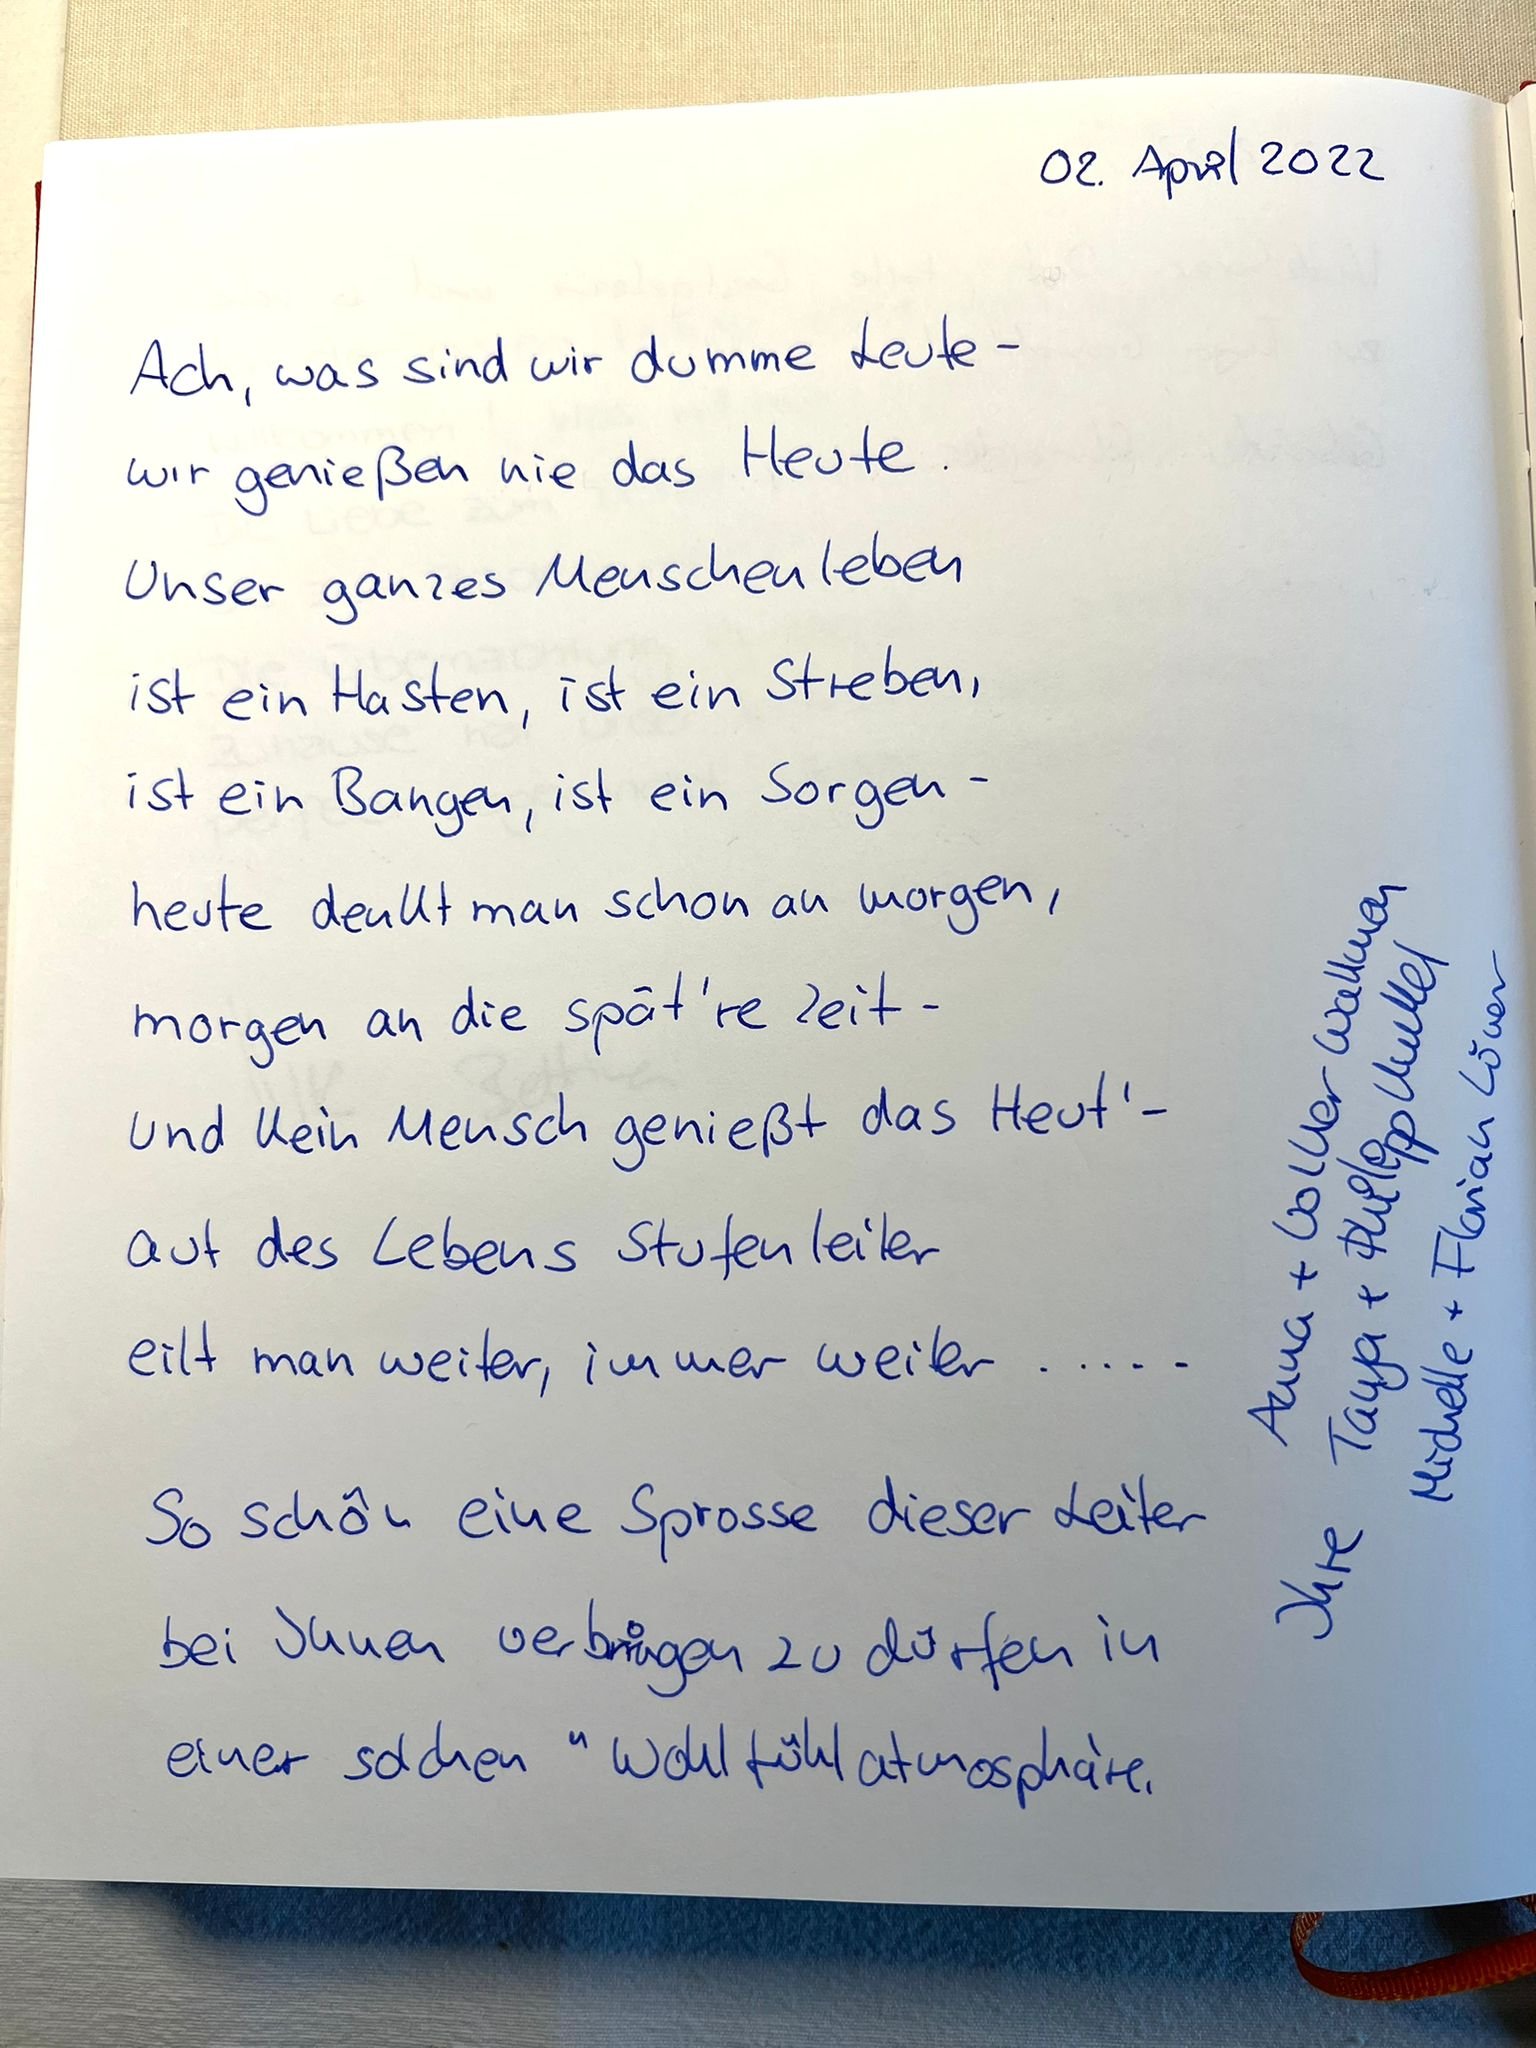 02. April 2022
Ach, was sind wir dumme Leute -
wir genießen nie das Heute.
Unser ganzes Menschenleben
ist ein Hasten, ist ein Streben,
ist ein Bangen, ist ein Sorgen -
heute denkt man schon an morgen,
morgen an die spät're Zeit -
und kein Mensch genießt das Heut' -
auf des Lebens Stufenleiter
eilt man weiter, immer weiter .....
So schön eine Sprosse dieser Leiter
bei Ihnen verbringen zu dürfen in
einer solchen "Wohlfühlatmosphäre.
Ihre Anna + Volker
Tanja + Philipp Kunkel
Michelle + Florian